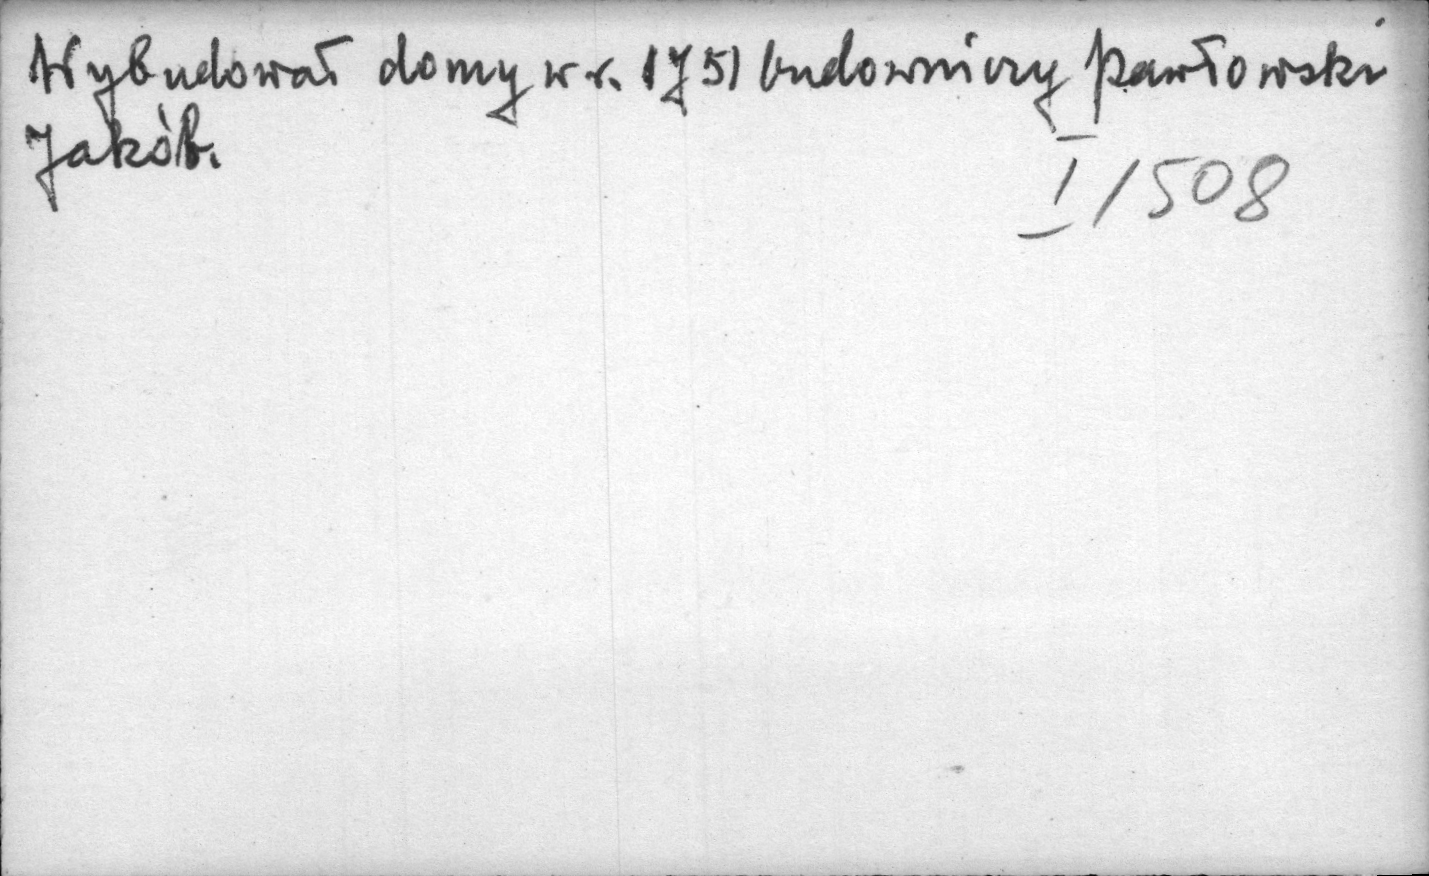 Wybudował domy w r. 1751 budowniczy Pawłowski
Jakób.
I/508